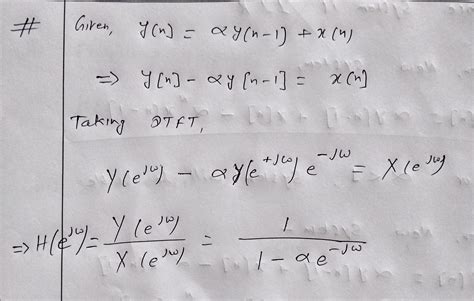 # Given, y[n] = αy[n-1] + x[n]
⇒ y[n] - αy[n-1] = x[n]
Taking DTFT,
Y(e^{jω}) - αY(e^{+jω}) e^{-jω} = X(e^{jω})
⇒ H(e^{jω}) = Y(e^{jω}) / X(e^{jω}) = 1 / (1 - αe^{-jω})